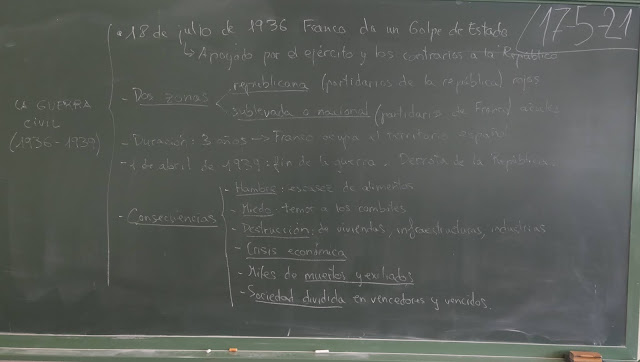 17-5-21
LA GUERRA
CIVIL
(1936-1939)
• 18 de julio de 1936 Franco da un Golpe de Estado
↳ Apoyado por el ejército y los contrarios a la República
- Dos zonas
republicana (partidarios de la república) rojos
sublevada o nacional (partidarios de Franco) azules
- Duración: 3 años → Franco ocupa el territorio español
- 1 de abril de 1939: fin de la guerra. Derrota de la República.
- Consecuencias
- Hambre: escasez de alimentos
- Miedo: temor a los combates
- Destrucción: de viviendas, infraestructuras, industrias
- Crisis económica
- Miles de muertos y exiliados
- Sociedad dividida en vencedores y vencidos.